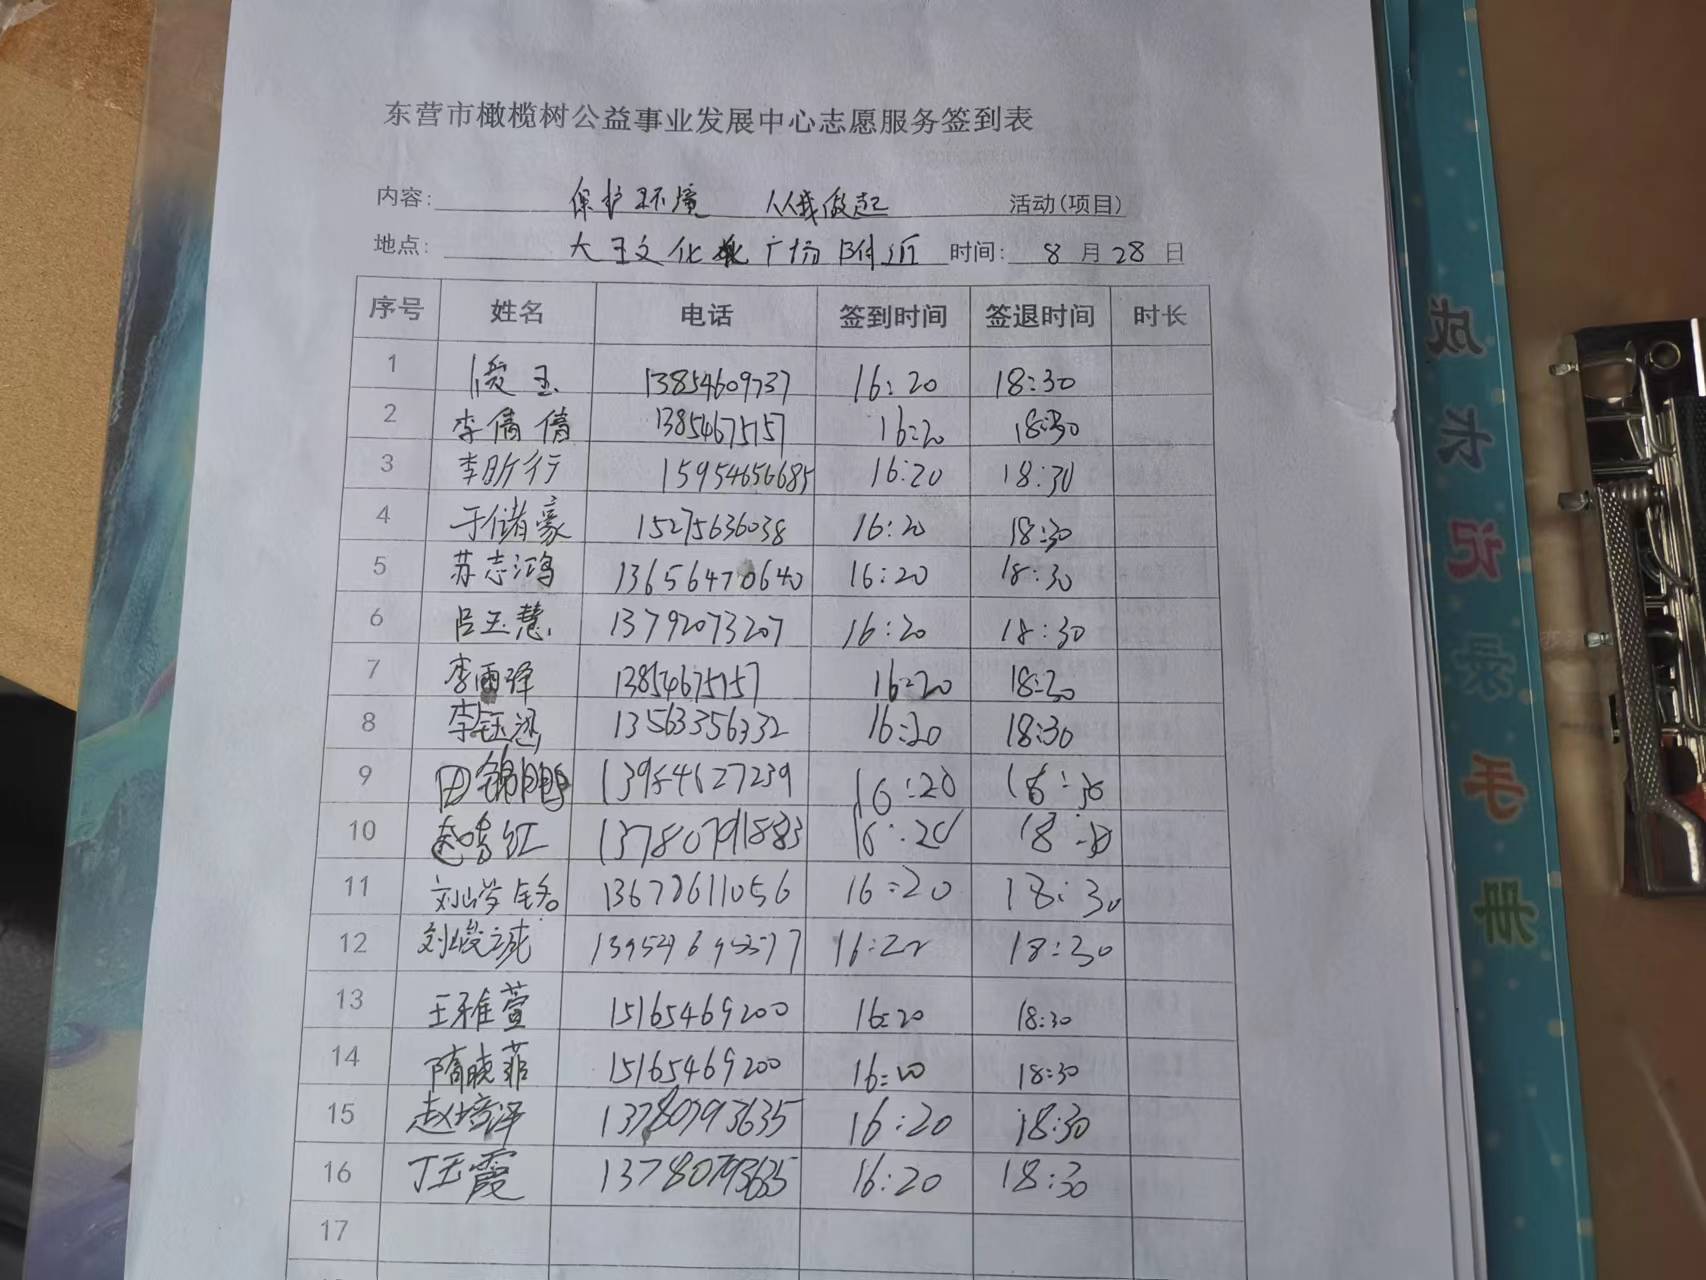 东营市橄榄树公益事业发展中心志愿服务签到表
内容: 保护环境 从我做起 活动(项目)
地点: 大王文化广场附近 时间: 8 月 28 日
序号 姓名 电话 签到时间 签退时间 时长
1 玉 13854609737 16:20 18:30
2 李倩倩 13854675157 16:20 18:30
3 李昕行 15954656685 16:20 18:30
4 于储豪 15275636038 16:20 18:30
5 苏志鸿 13656470640 16:20 18:30
6 吕玉慧 13792073207 16:20 18:30
7 李雨泽 13854675157 16:20 18:30
8 李钰涵 13563356332 16:20 18:30
9 田锦鹏 13954627239 16:20 18:30
10 红 16:20 18:30
11 刘 13678611056 16:20 18:30
12 刘峻诚 16:20 18:30
13 王雅萱 15165469200 16:20 18:30
14 隋晓菲 15165469200 16:20 18:30
15 赵培泽 13780793635 16:20 18:30
16 丁玉霞 13780793635 16:20 18:30
17
成长记录手册